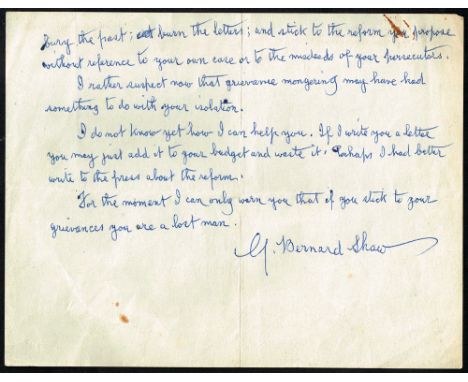 bury the past; burn the letters; and stick to the reform you propose
without reference to your own case or to the misdeeds of your persecutors.
I rather suspect now that grievance mongering may have had
something to do with your isolation.
I do not know yet how I can help you. If I write you a letter
you may just add it to your budget and waste it. Perhaps I had better
write to the press about the reform.
For the moment I can only warn you that if you stick to your
grievances you are a lost man.
G. Bernard Shaw